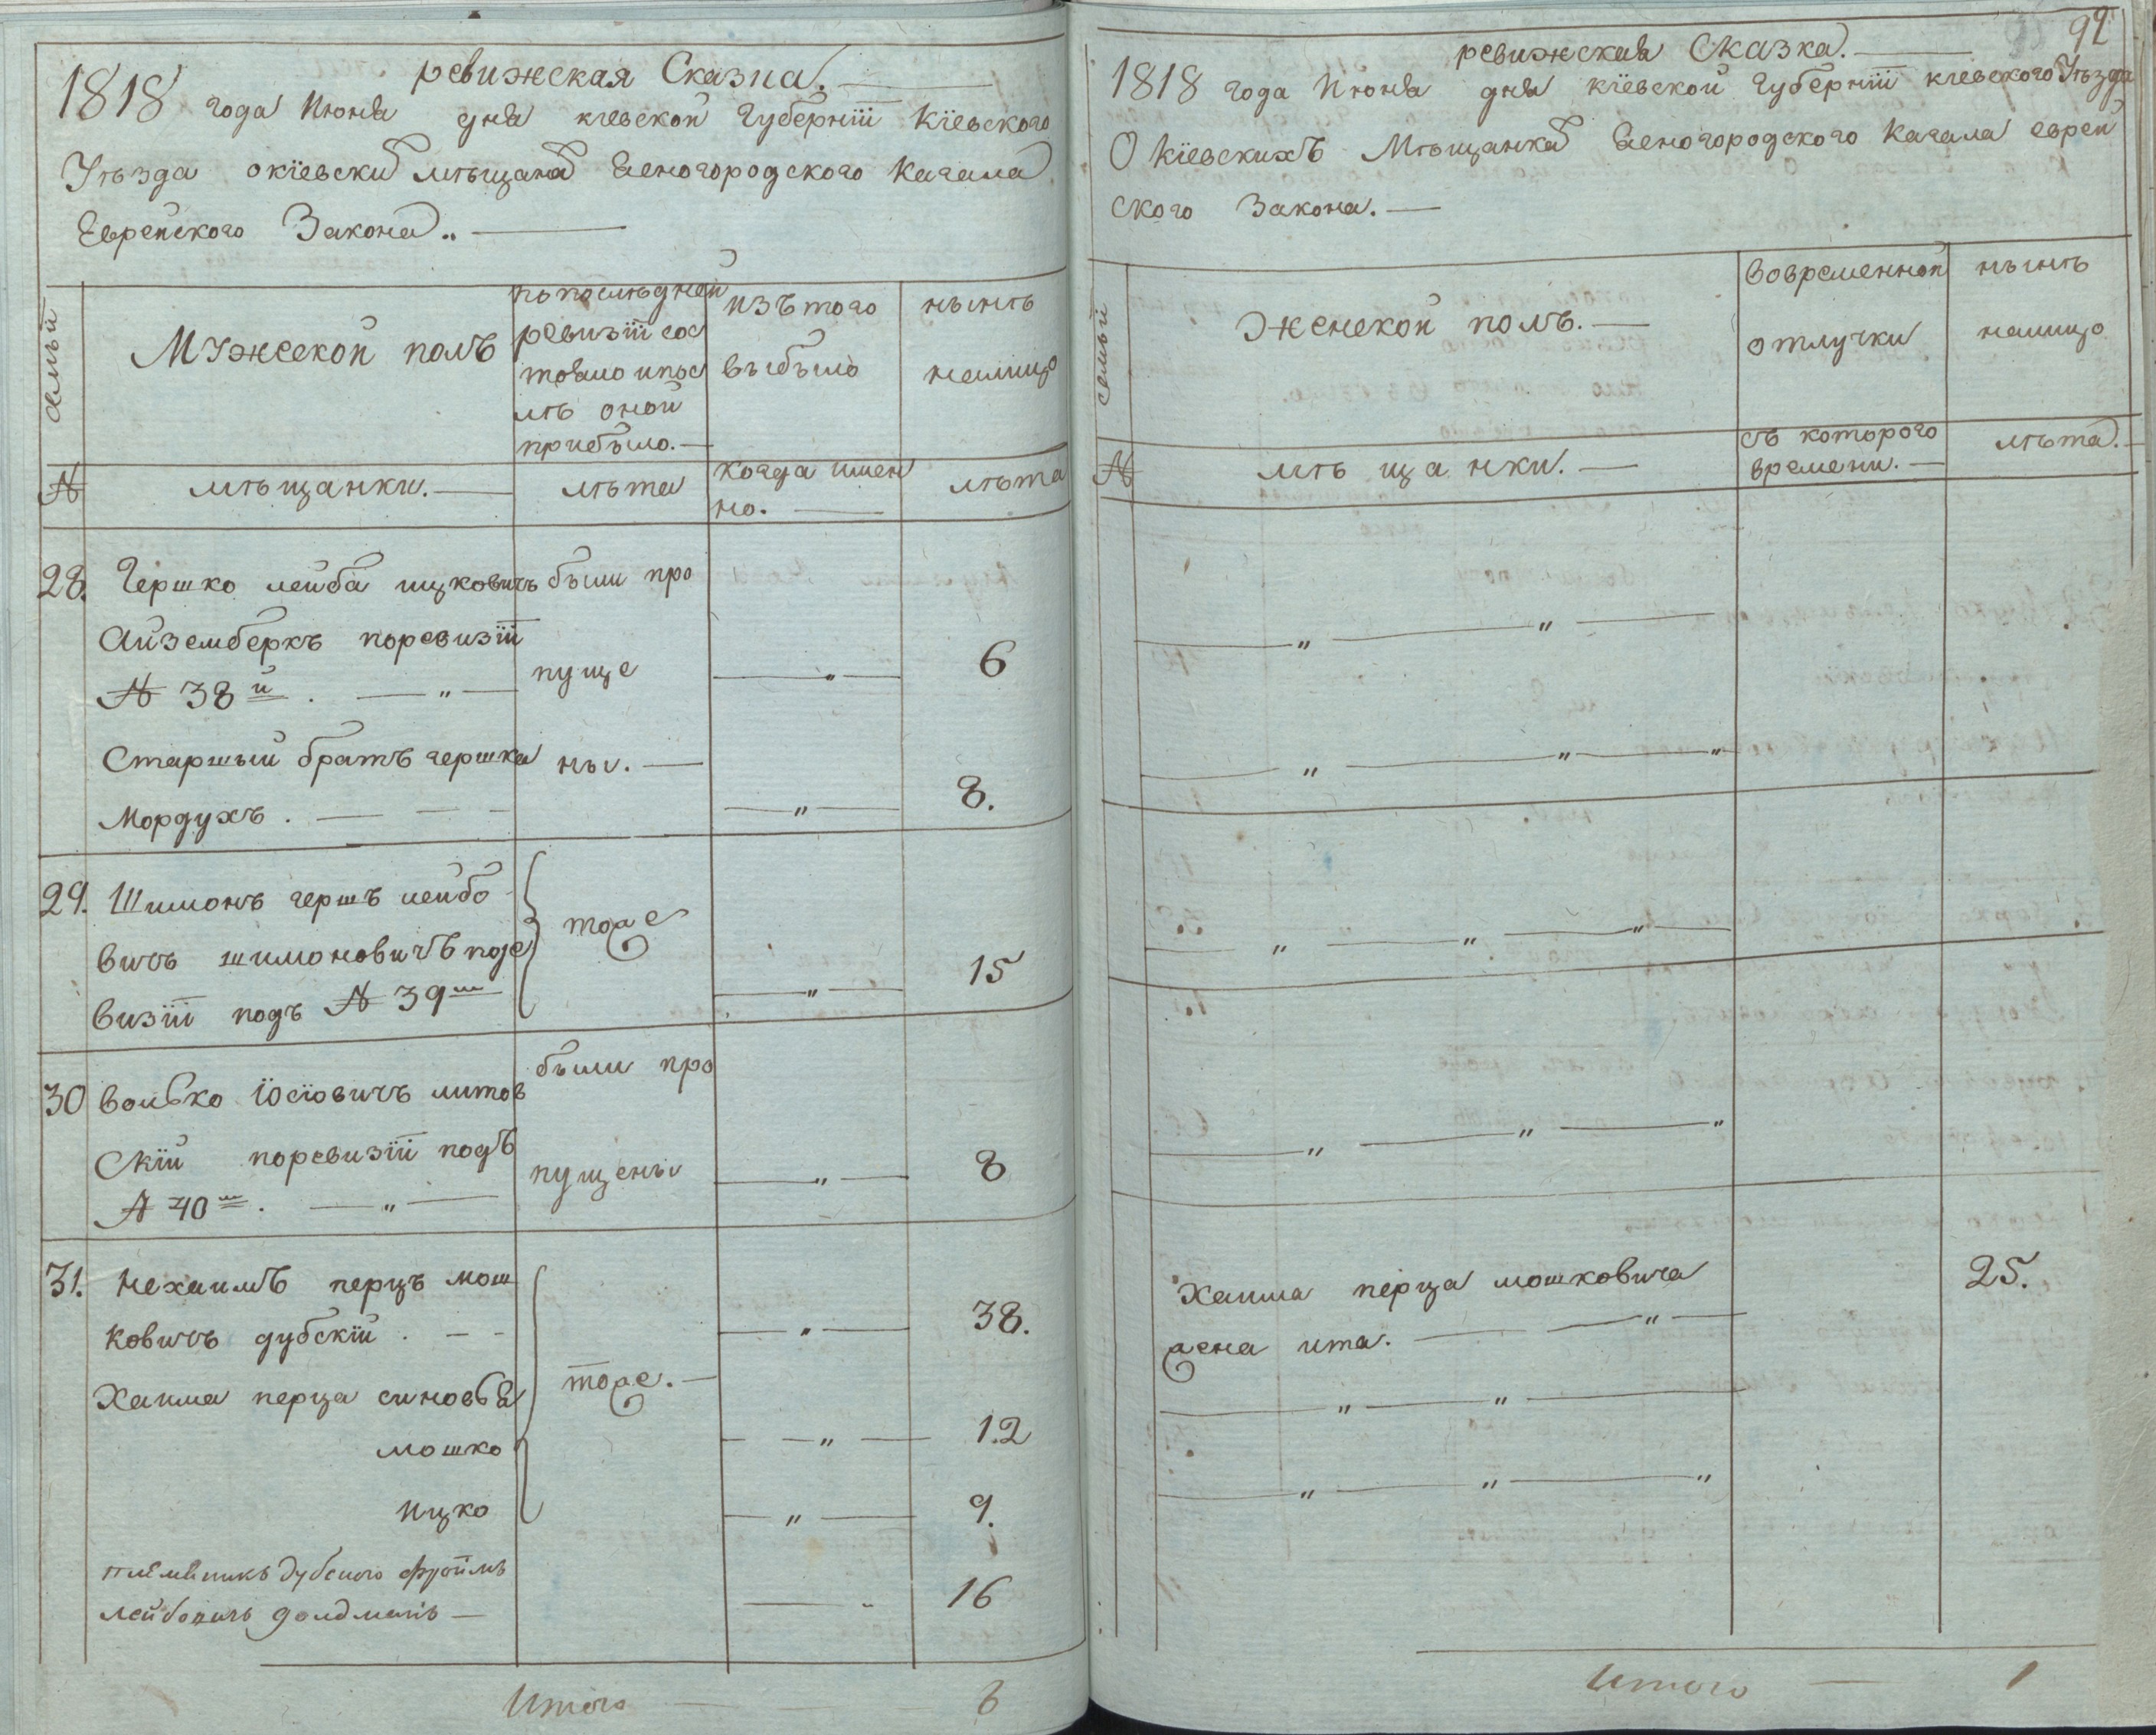 ревизская Сказка.
1818 года июня дня киевской Губернїи Кїевского
Уъзда о кїевски мъщана Беногородского Кагала
Еврейского Закона..
семьи
Мужеской полъ
попослъдней
ревизїи сос
тояло ипос
лъ оной
прибыло.
изъ того
выбыло
нынъ
налицо
№
мъщанки.
лъта
когда имен
но.
лъта
28. Гершко лейба ицковичъ были про
Айземберкъ поревизїи
№ 38й. пуще 6
Старшый братъ гершка ны.
Мордухъ. 8.
29. Шимонъ гершъ лейбо
вичъ шимоновичъ поре тоже
визїи подъ № 39ш 15
были про
30 волько Їосїовичъ литов
скїй поревизїи подъ пущены 8
№ 40ш.
31. Нехаимъ перцъ мош
ковичъ дубскїй. 38.
Хаима перца синовья тоже.
мошко 12
ицко 9.
племяникъ дубского фроимъ
лейбовичъ голдманъ 16
Итого 8
92
ревизская Сказка.
1818 года Июня дня кїевской Губернїи киевского Уъзда
О Кїевскихъ Мъщанка Беногородского Кагала еврей
ского Закона.
семьи
женской полъ.
вовременной
отлучки
нынъ
налицо
№
мъщанки.
съ которого
времени.
лъта.
Хаима перца мошковича 25.
жена ита.
Итого 1